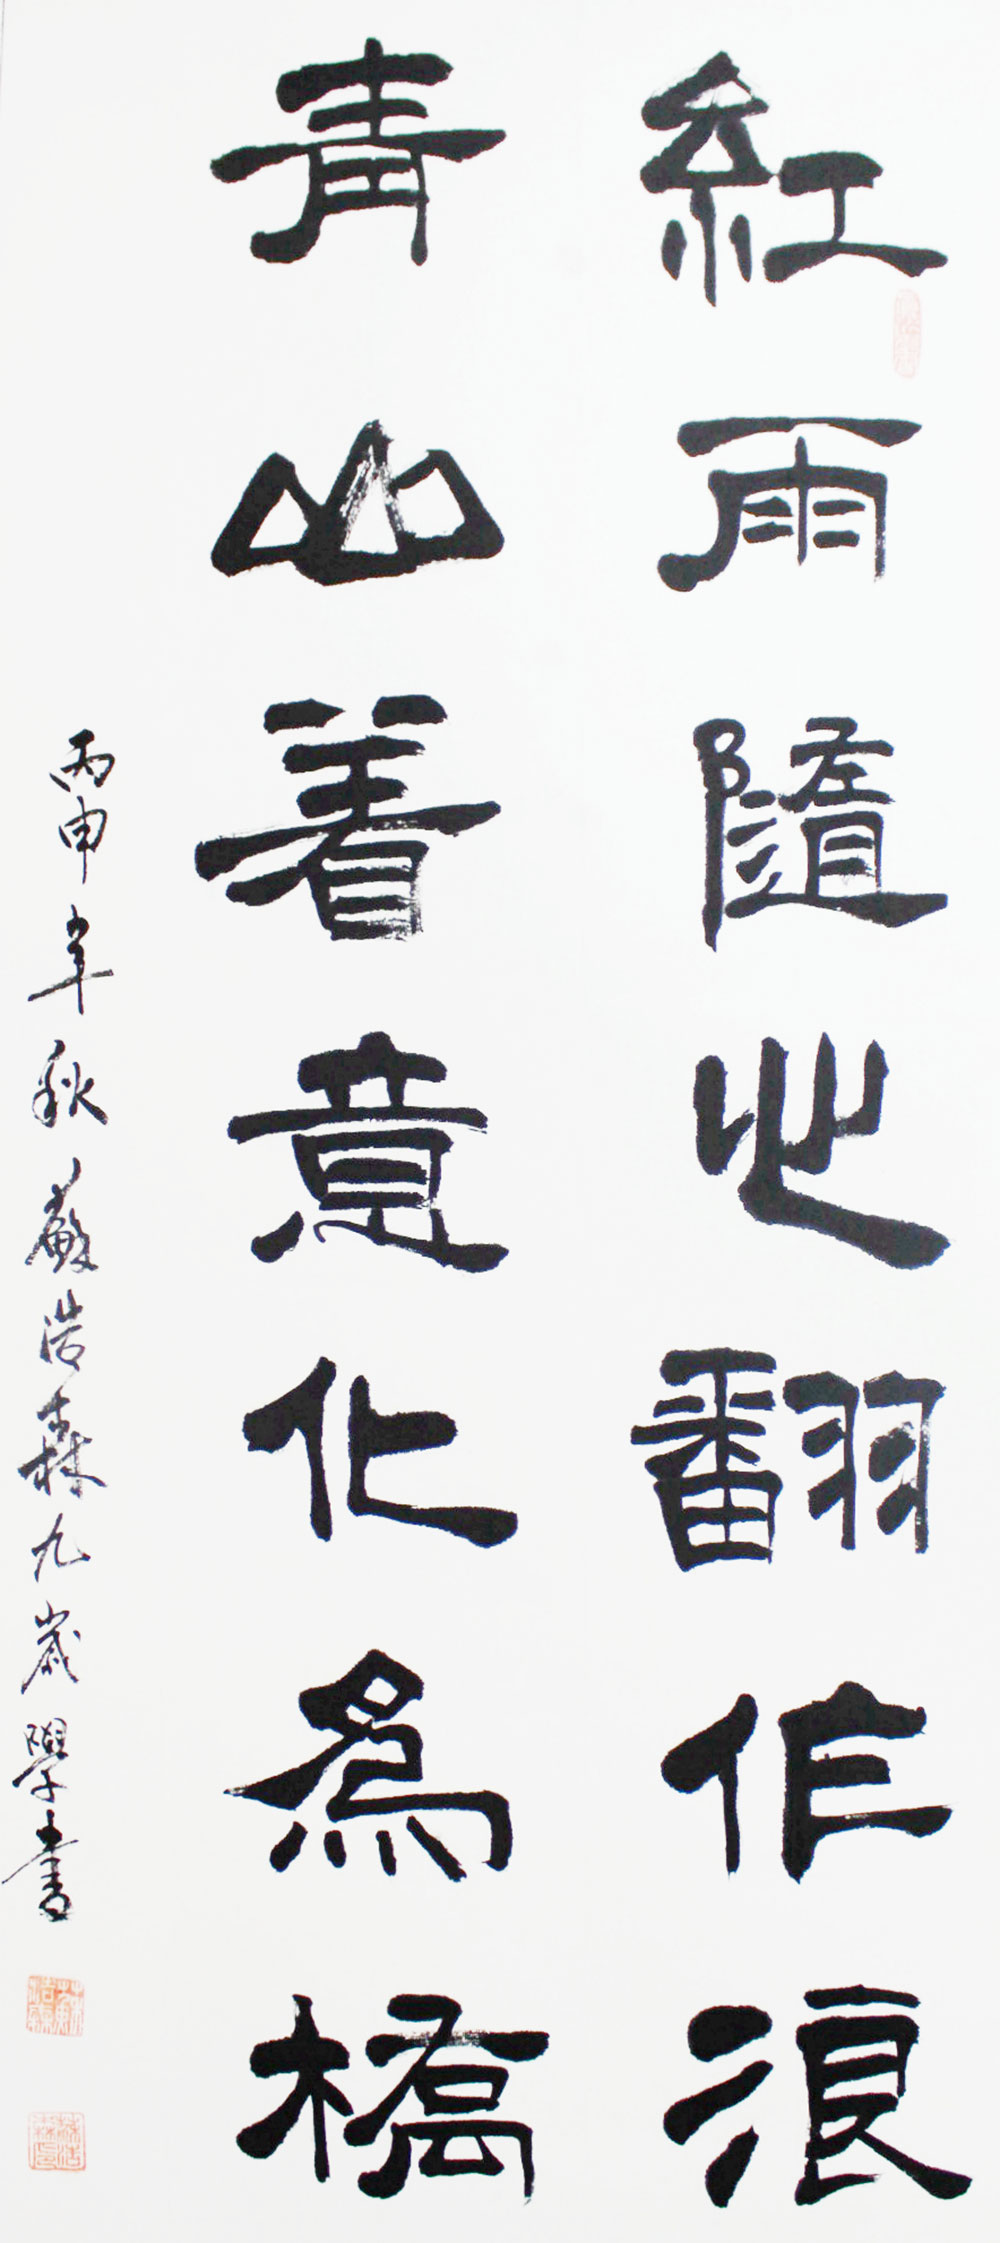 紅雨隨心翻作浪
青山着意化為橋
丙申年秋蘇浩森九歲學書